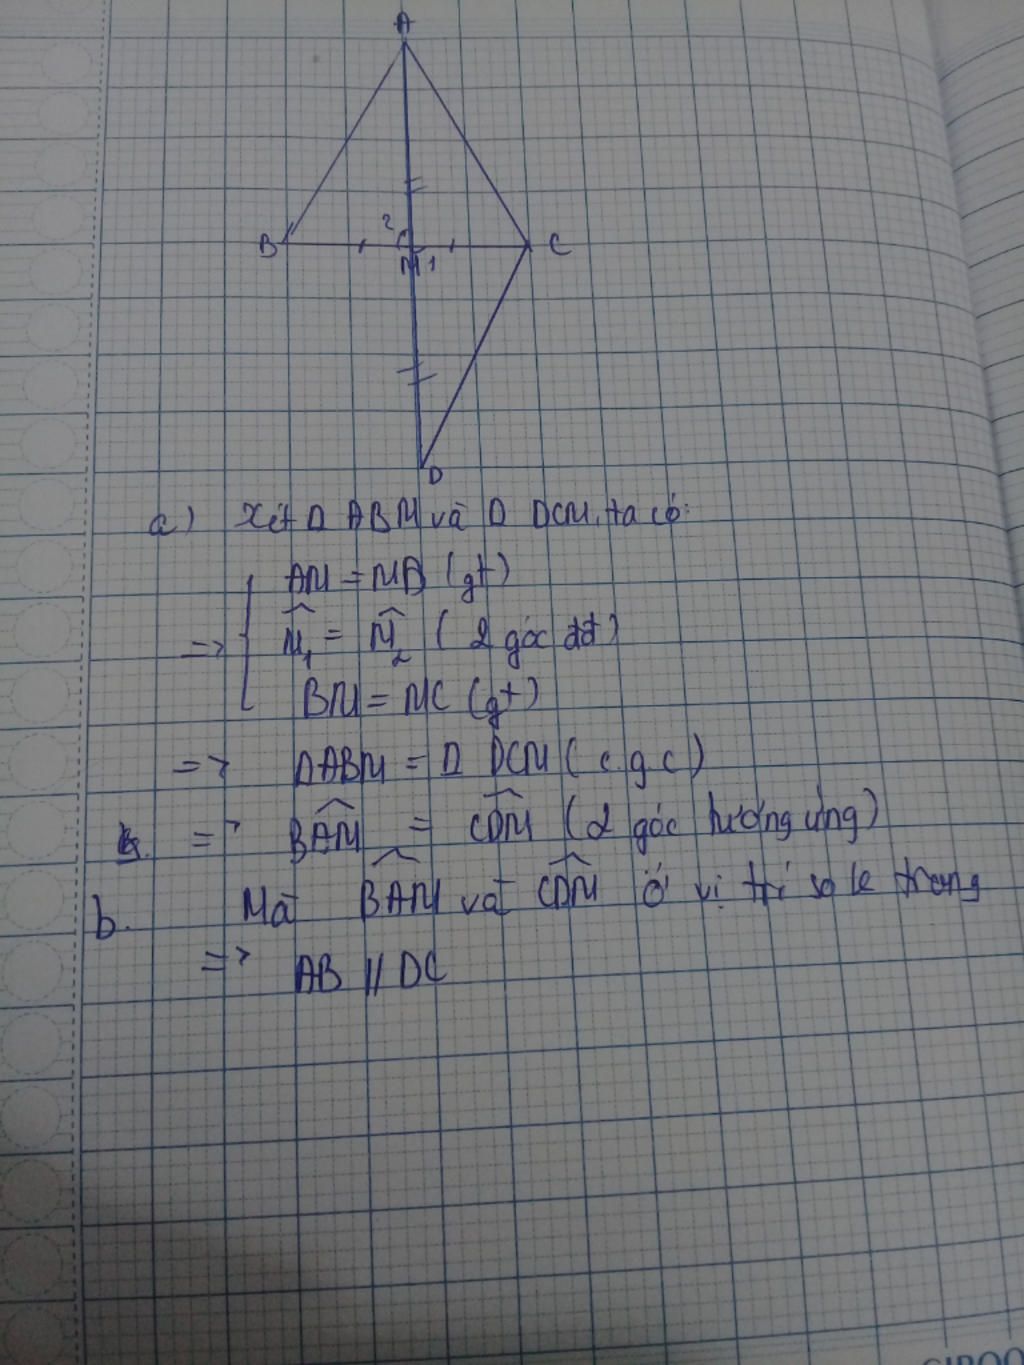 A
B
2
M 1
C
D
a) Xét Δ ABM và Δ DCM, ta có:
AM = MD (gt)
=> M̂₁ = M̂₂ (2 góc đđ)
BM = MC (gt)
=> ΔABM = Δ DCM (c g c)
=> BÂM = CD̂M (2 góc tương ứng)
b. Mà BÂM và CD̂M ở vị trí so le trong
=> AB // DC